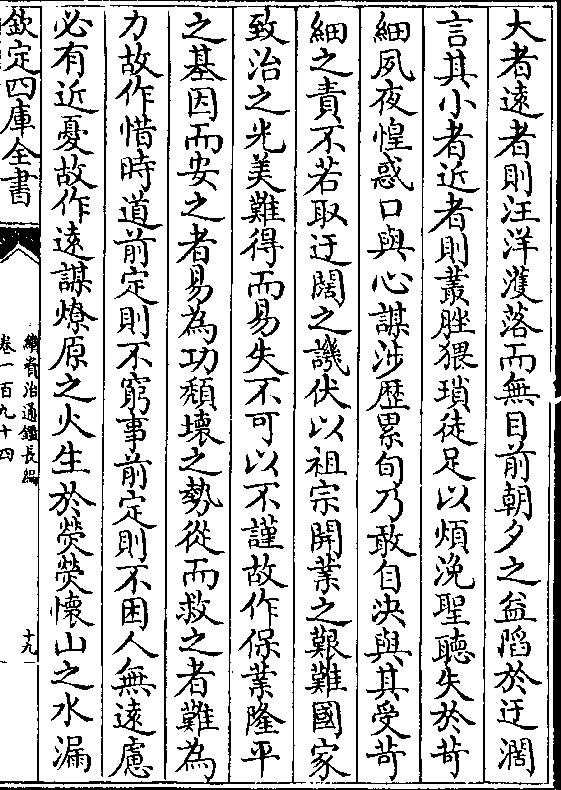 大者遠者則汪洋濩落而無目前朝夕之益陷於迂濶
言其小者近者則叢脞猥瑣徒足以煩浼聖聽失於苛
細夙夜惶惑口與心謀涉歴累旬乃敢自决與其受苛
細之責不若取迂闊之譏伏以祖宗開業之艱難國家
致治之光美難得而易失不可以不謹故作保業隆平
之基因而安之者易為功頽壞之勢從而救之者難為
力故作惜時道前定則不窮事前定則不困人無遠慮
必有近憂故作遠謀燎原之火生於熒熒懷山之水漏
欽定四庫全書
續資治通鑑長編
卷一百九十四
十九